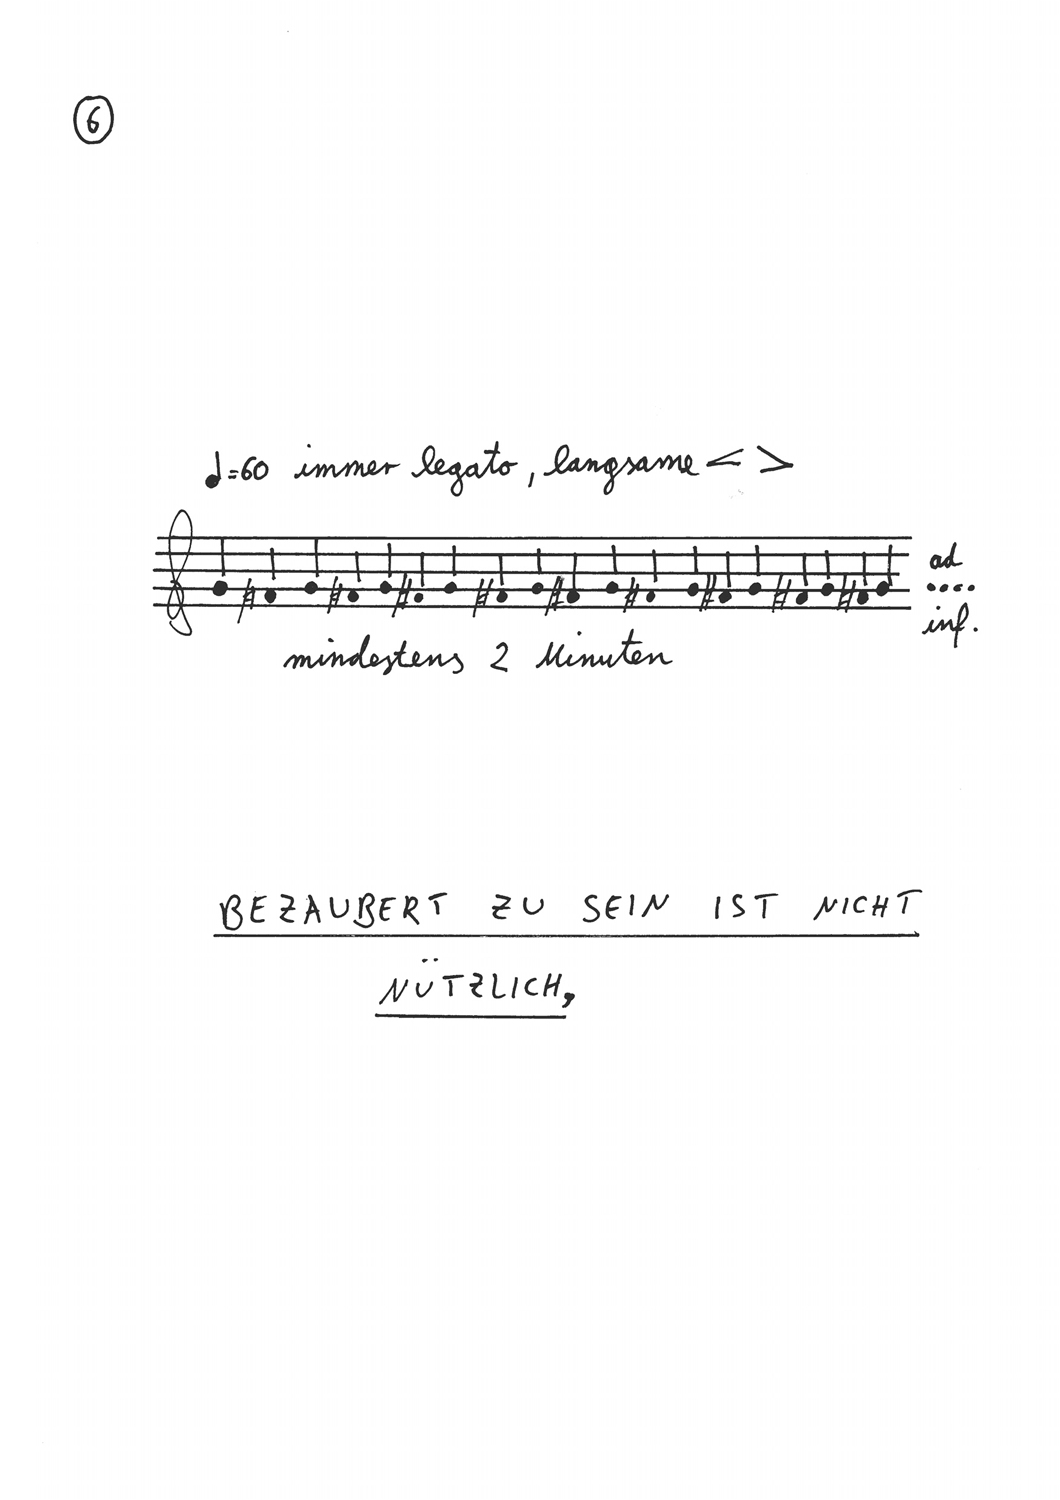 6
♩=60 immer legato, langsame < >
ad
....
inf.
mindestens 2 Minuten
BEZAUBERT ZU SEIN IST NICHT
NÜTZLICH,